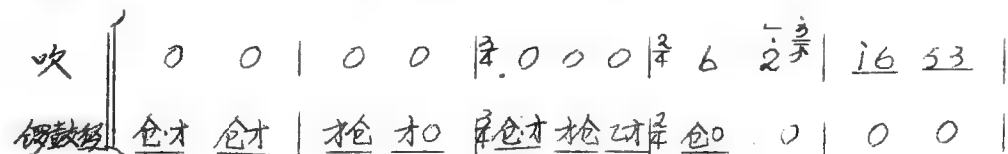 吹 0 0 | 0 0 | 3/4 0 0 0 | 2/4 6 2̇ | i6 53 |
锣鼓经 仓·才 仓才 | 才仓 才0 | 3/4 仓·才 才仓 乙才 | 2/4 仓0 0 | 0 0 |